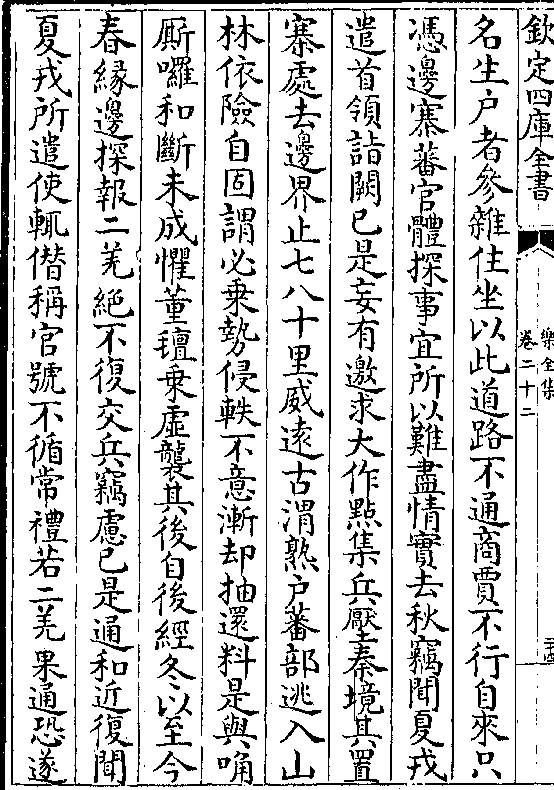 欽定四庫全書
樂全集
卷二十二
名生户者參雜住坐以此道路不通商賈不行自來只
憑邊寨蕃官體探事宜所以難盡情實去秋竊聞夏戎
遣首領詣闕已是妄有邀求大作㸃集兵壓秦境其置
寨處去邊界止七八十里威逺古渭熟户蕃部逃入山
林依險自固謂必乗勢侵軼不意漸却抽還料是與唃
厮囉和斷未成懼董氊乗虚襲其後自後經冬以至今
春縁邊探報二羌絶不復交兵竊慮已是通和近復聞
夏戎所遣使輒僣稱官號不循常禮若二羌果通恐遂